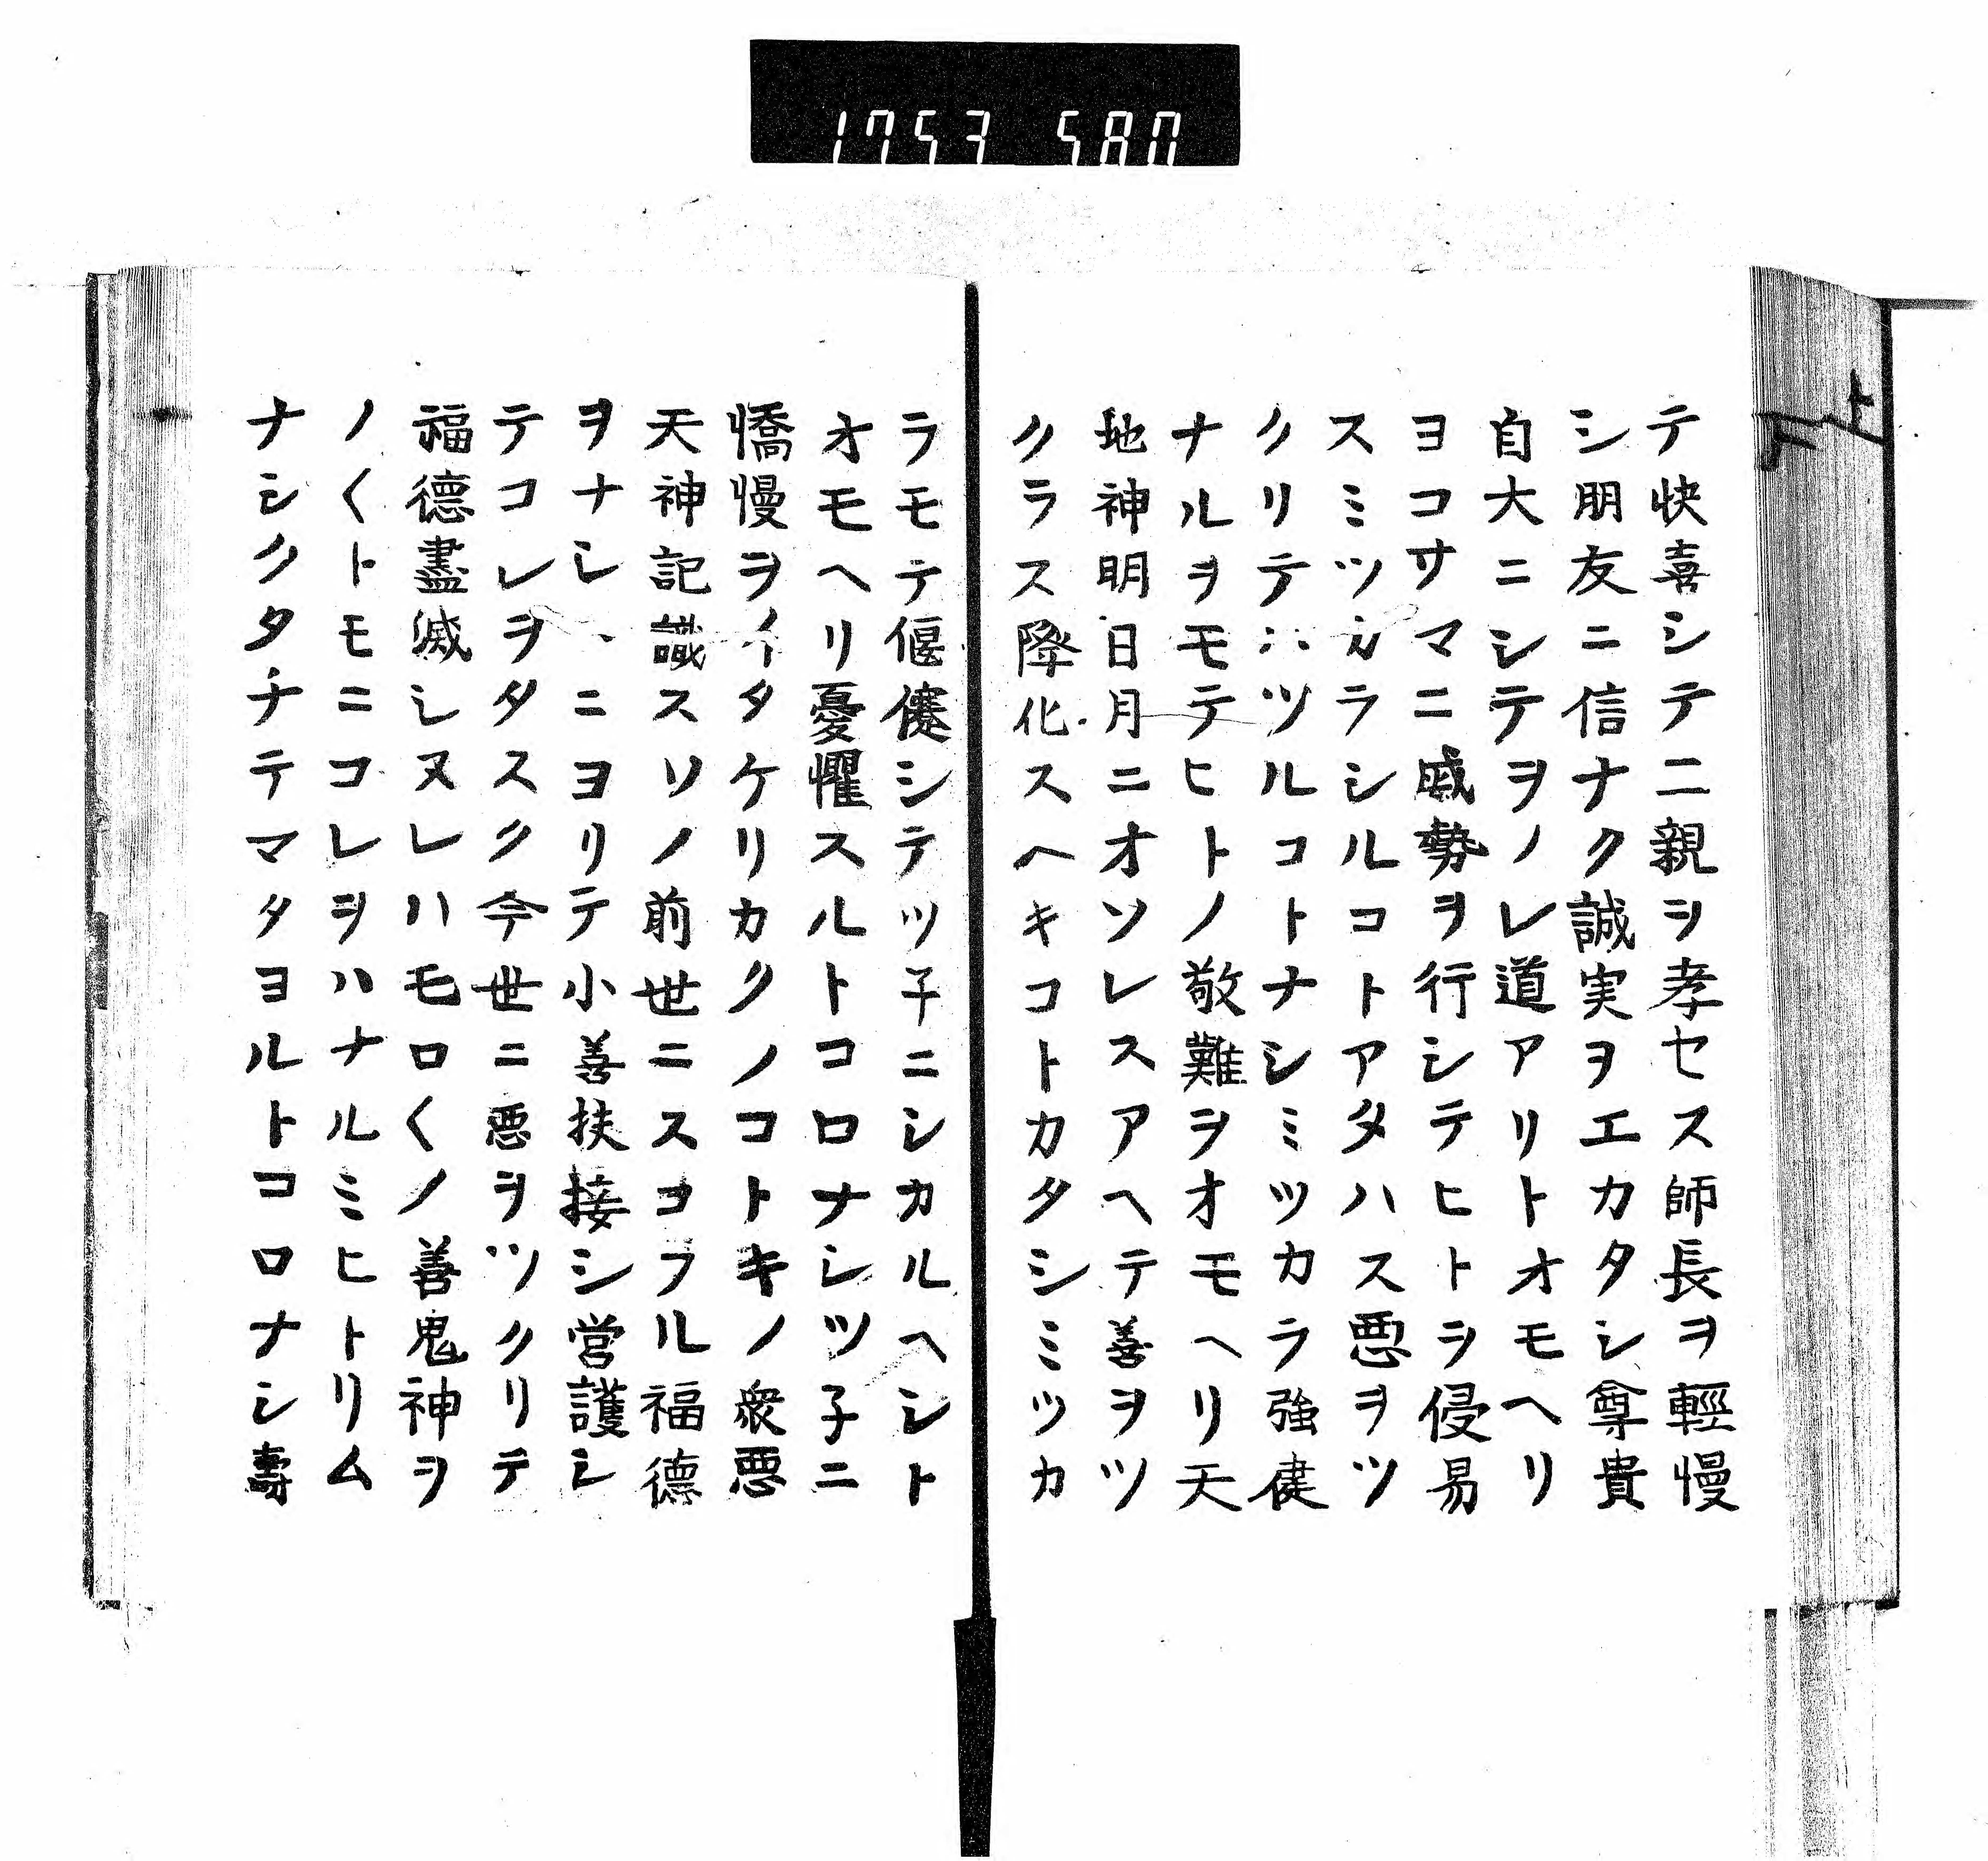 1753 580
テ快喜シテ二親ヲ孝セス師長ヲ輕慢
シ朋友ニ信ナク誠実ヲエカタシ尊貴
自大ニシテヲノレ道アリトオモヘリ
ヨコサマニ威勢ヲ行シテヒトヲ侵易
スミツカラシルコトアタハス悪ヲツ
クリテハツルコトナシミツカラ強健
ナルヲモテヒトノ敬難ヲオモヘリ天
地神明日月ニオソレスアヘテ善ヲツ
クラス降化スヘキコトカタシミツカ
ラモテ偃蹇シテツ子ニシカルヘシト
オモヘリ憂懼スルトコロナシツ子ニ
憍慢ヲイタケリカクノコトキノ衆悪
天神記識スソノ前世ニスコフル福徳
ヲナシヽニヨリテ小善扶接シ営護シ
テコレヲタスク今世ニ悪ヲツクリテ
福徳盡滅シヌレハモロ〱ノ善鬼神ヲ
ノ〱トモニコレヲハナルミヒトリム
ナシクタチテマタヨルトコロナシ壽